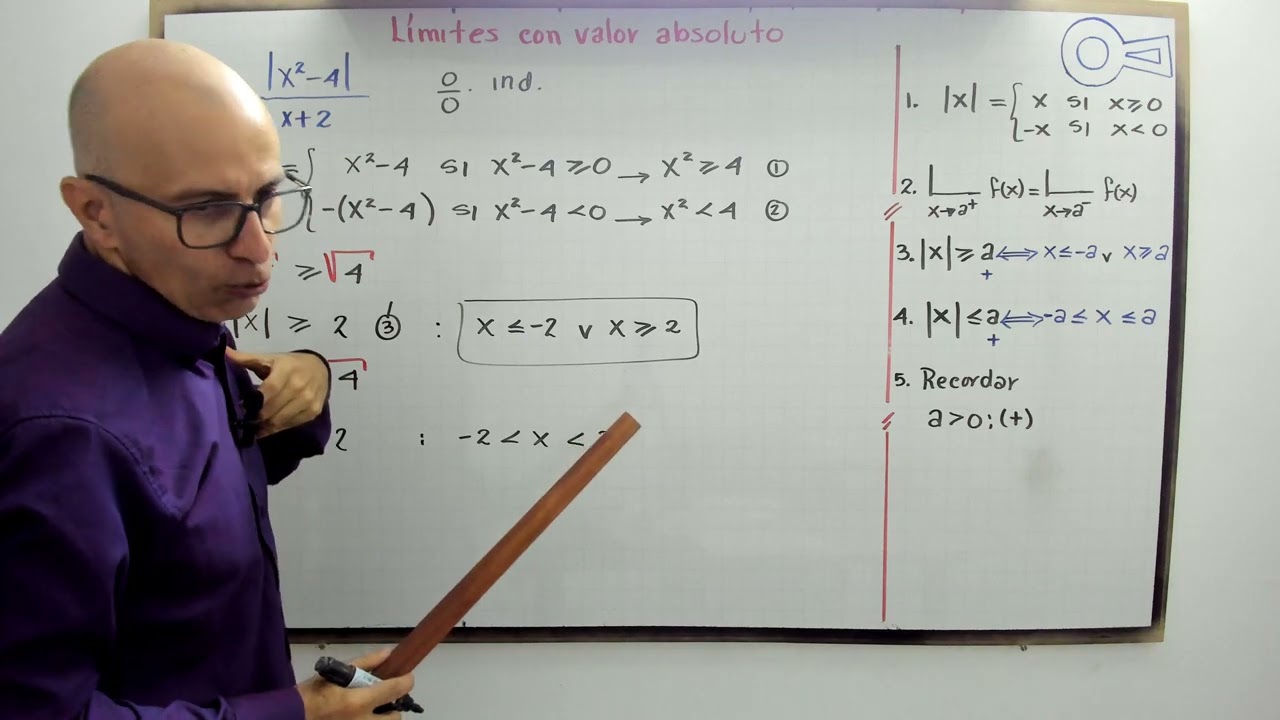 Límites con valor absoluto
|x²-4|
x+2
0/0 . ind.
= { x²-4 si x²-4 ≥ 0 → x² ≥ 4 ①
-(x²-4) si x²-4 < 0 → x² < 4 ②
≥ √4
|x| ≥ 2 ③ : x ≤ -2 v x ≥ 2
4
2 : -2 < x <
1. |x| = { x si x ≥ 0
-x si x < 0
2. L f(x) = L f(x)
x→a⁺ x→a⁻
3. |x| ≥ a ⟺ x ≤ -a v x ≥ a
+
4. |x| ≤ a ⟺ -a ≤ x ≤ a
+
5. Recordar
a > 0 ; (+)